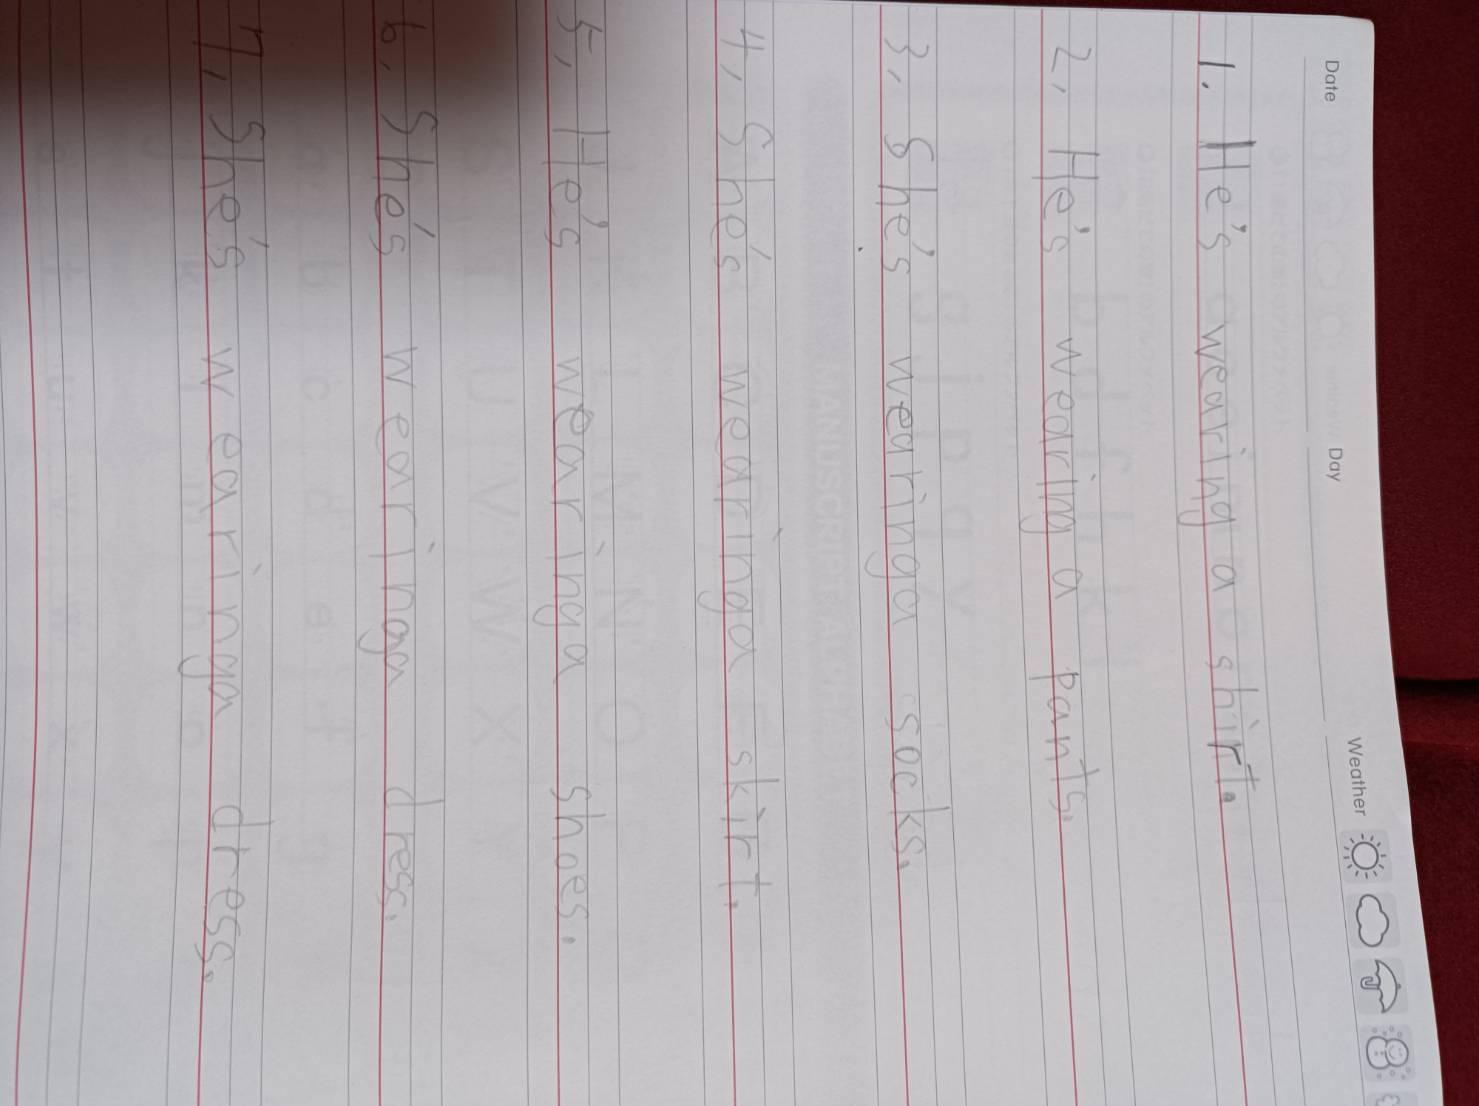 Date Day Weather
1. He's wearing a shirt.
2, He's wearing a pants.
3, She's wearinga socks.
4, She's wearinga skirt.
5, He's wearinga shoes.
6, She's wearinga dress.
7, She's wearinga dress.